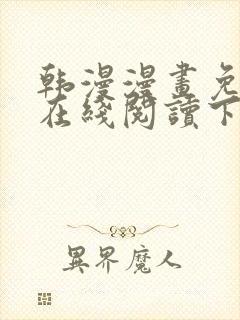 韩漫漫畫免
在綫閱讀下
異界魔人